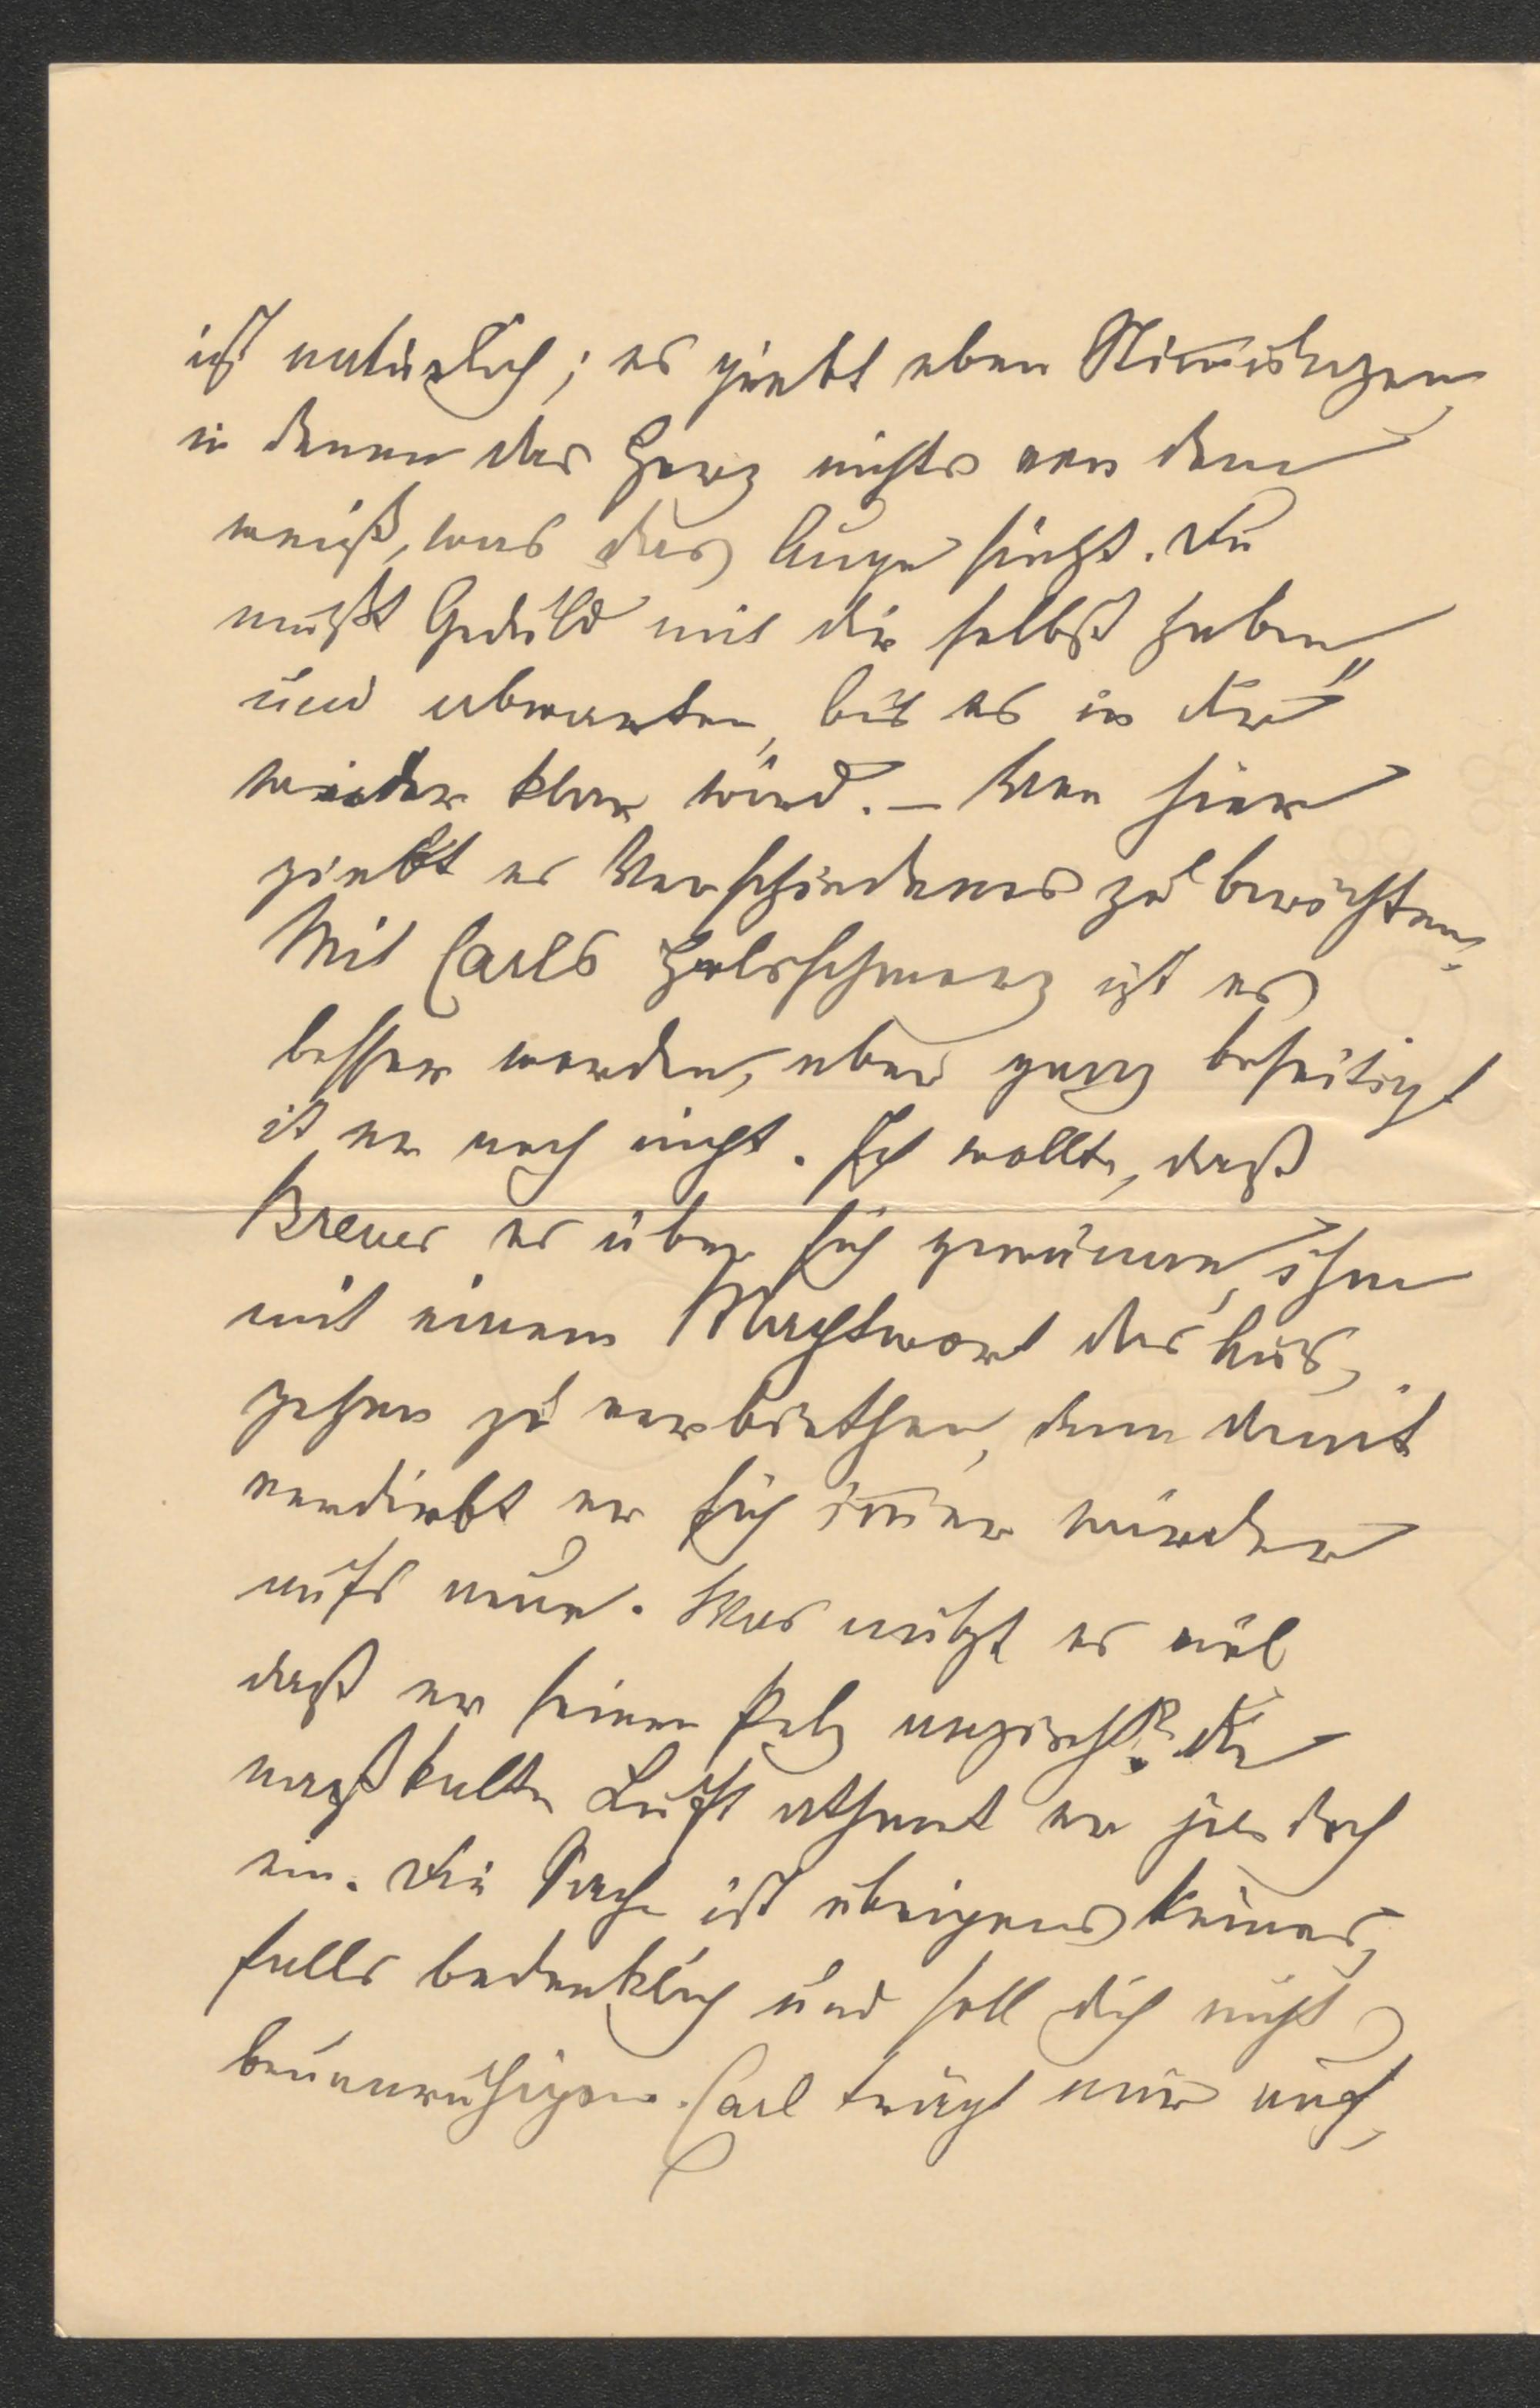 ist natürlich; es giebt eben Stimmungen
in denen das Herz nichts von dem
weiß, was das Auge sieht. Du
mußt Geduld mit dir selbst haben
und abwarten, bis es in dir
wieder klar wird. – Von hier
giebt es Verschiedenes zu berichten.
Mit Carls Halsschmerz ist es
besser worden, aber ganz beseitigt
ist er noch nicht. Ich wollte, daß
Breuer es über sich gewänne, ihm
mit einem Machtwort das Aus-
gehen zu verbiethen, denn damit
verdirbt er sich immer wieder
aufs neue. Was nützt es viel
daß er seinen Pelz anzieht? Die
naßkalte Luft athmet er ja doch
ein. Die Sache ist übrigens keines-
falls bedenklich und soll dich nicht
beunruhigen. Carl trägt mir auf,